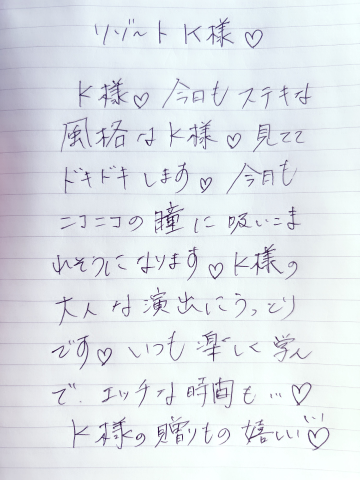 リゾート K様♡
K様♡今日もステキな
風格なK様♡見てて
ドキドキします♡今日も
ニコニコの瞳に吸いこま
れそうになります♡K様の
大人な演出にうっとり
です♡いつも楽しく学ん
で、エッチな時間も…♡
K様の贈りもの嬉しい♡